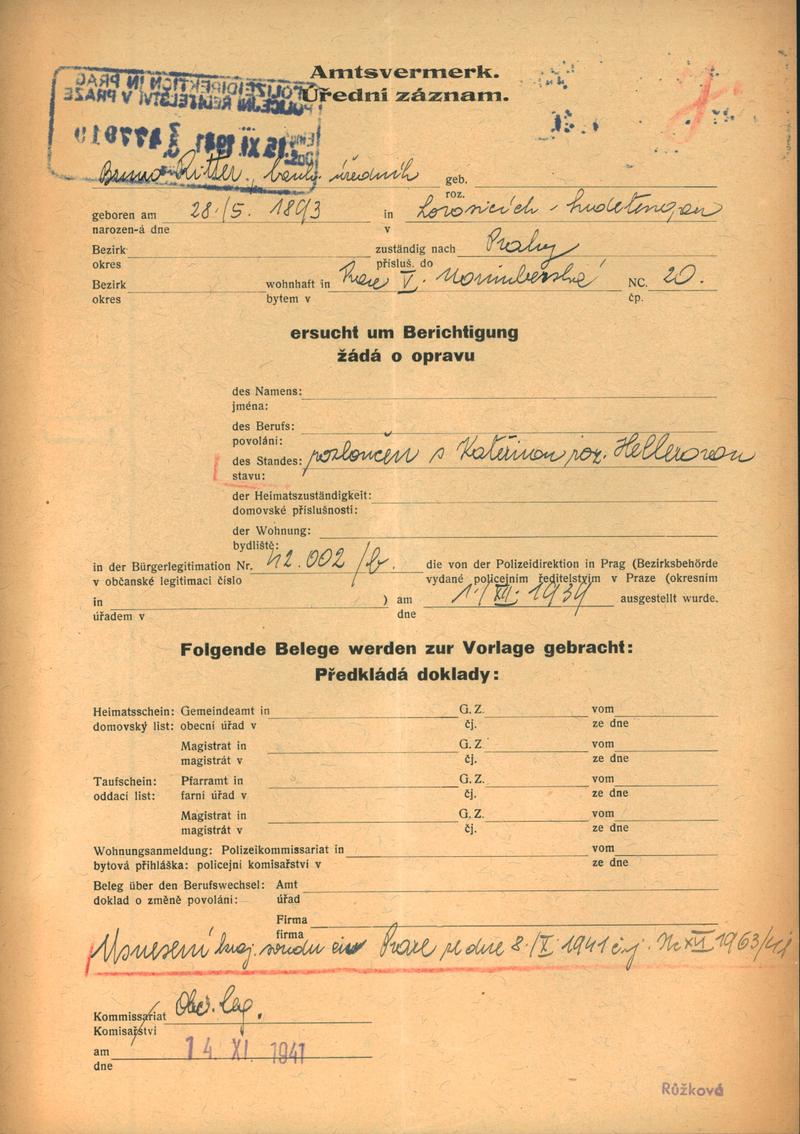 Amtsvermerk.
Úřední záznam.
POLIZEIDIREKTION IN PRAG
POLICEJNÍ ŘEDITELSTVÍ V PRAZE
15. XI. 1941
Bruno Ritter, bank. úředník geb.
roz.
geboren am 28./5. 1893 in
narozen-á dne v
Bezirk zuständig nach Prahy
okres přísluš. do
Bezirk wohnhaft in Praze V. NC. 20.
okres bytem v čp.
ersucht um Berichtigung
žádá o opravu
des Namens:
jména:
des Berufs:
povolání:
des Standes: rozloučen s Kateřinou roz. Hellerovou
stavu:
der Heimatszuständigkeit:
domovské příslušnosti:
der Wohnung:
bydliště:
in der Bürgerlegitimation Nr. 42.002/b. die von der Polizeidirektion in Prag (Bezirksbehörde
v občanské legitimaci číslo vydané policejním ředitelstvím v Praze (okresním
in ) am 1./XII. 1939 ausgestellt wurde.
úřadem v dne
Folgende Belege werden zur Vorlage gebracht:
Předkládá doklady:
Heimatsschein: Gemeindeamt in G. Z. vom
domovský list: obecní úřad v čj. ze dne
Magistrat in G. Z vom
magistrát v čj. ze dne
Taufschein: Pfarramt in G. Z. vom
oddací list: farní úřad v čj. ze dne
Magistrat in G. Z. vom
magistrát v čj. ze dne
Wohnungsanmeldung: Polizeikommissariat in vom
bytová přihláška: policejní komisařství v ze dne
Beleg über den Berufswechsel: Amt
doklad o změně povolání: úřad
Firma
firma
Usnesení kraj. soudu civ Praze ze dne 8./X. 1941 č.j. Nc XII 1963/41
Kommissariat Obč. leg.
Komisařství
am 14. XI. 1941
dne
Růžková